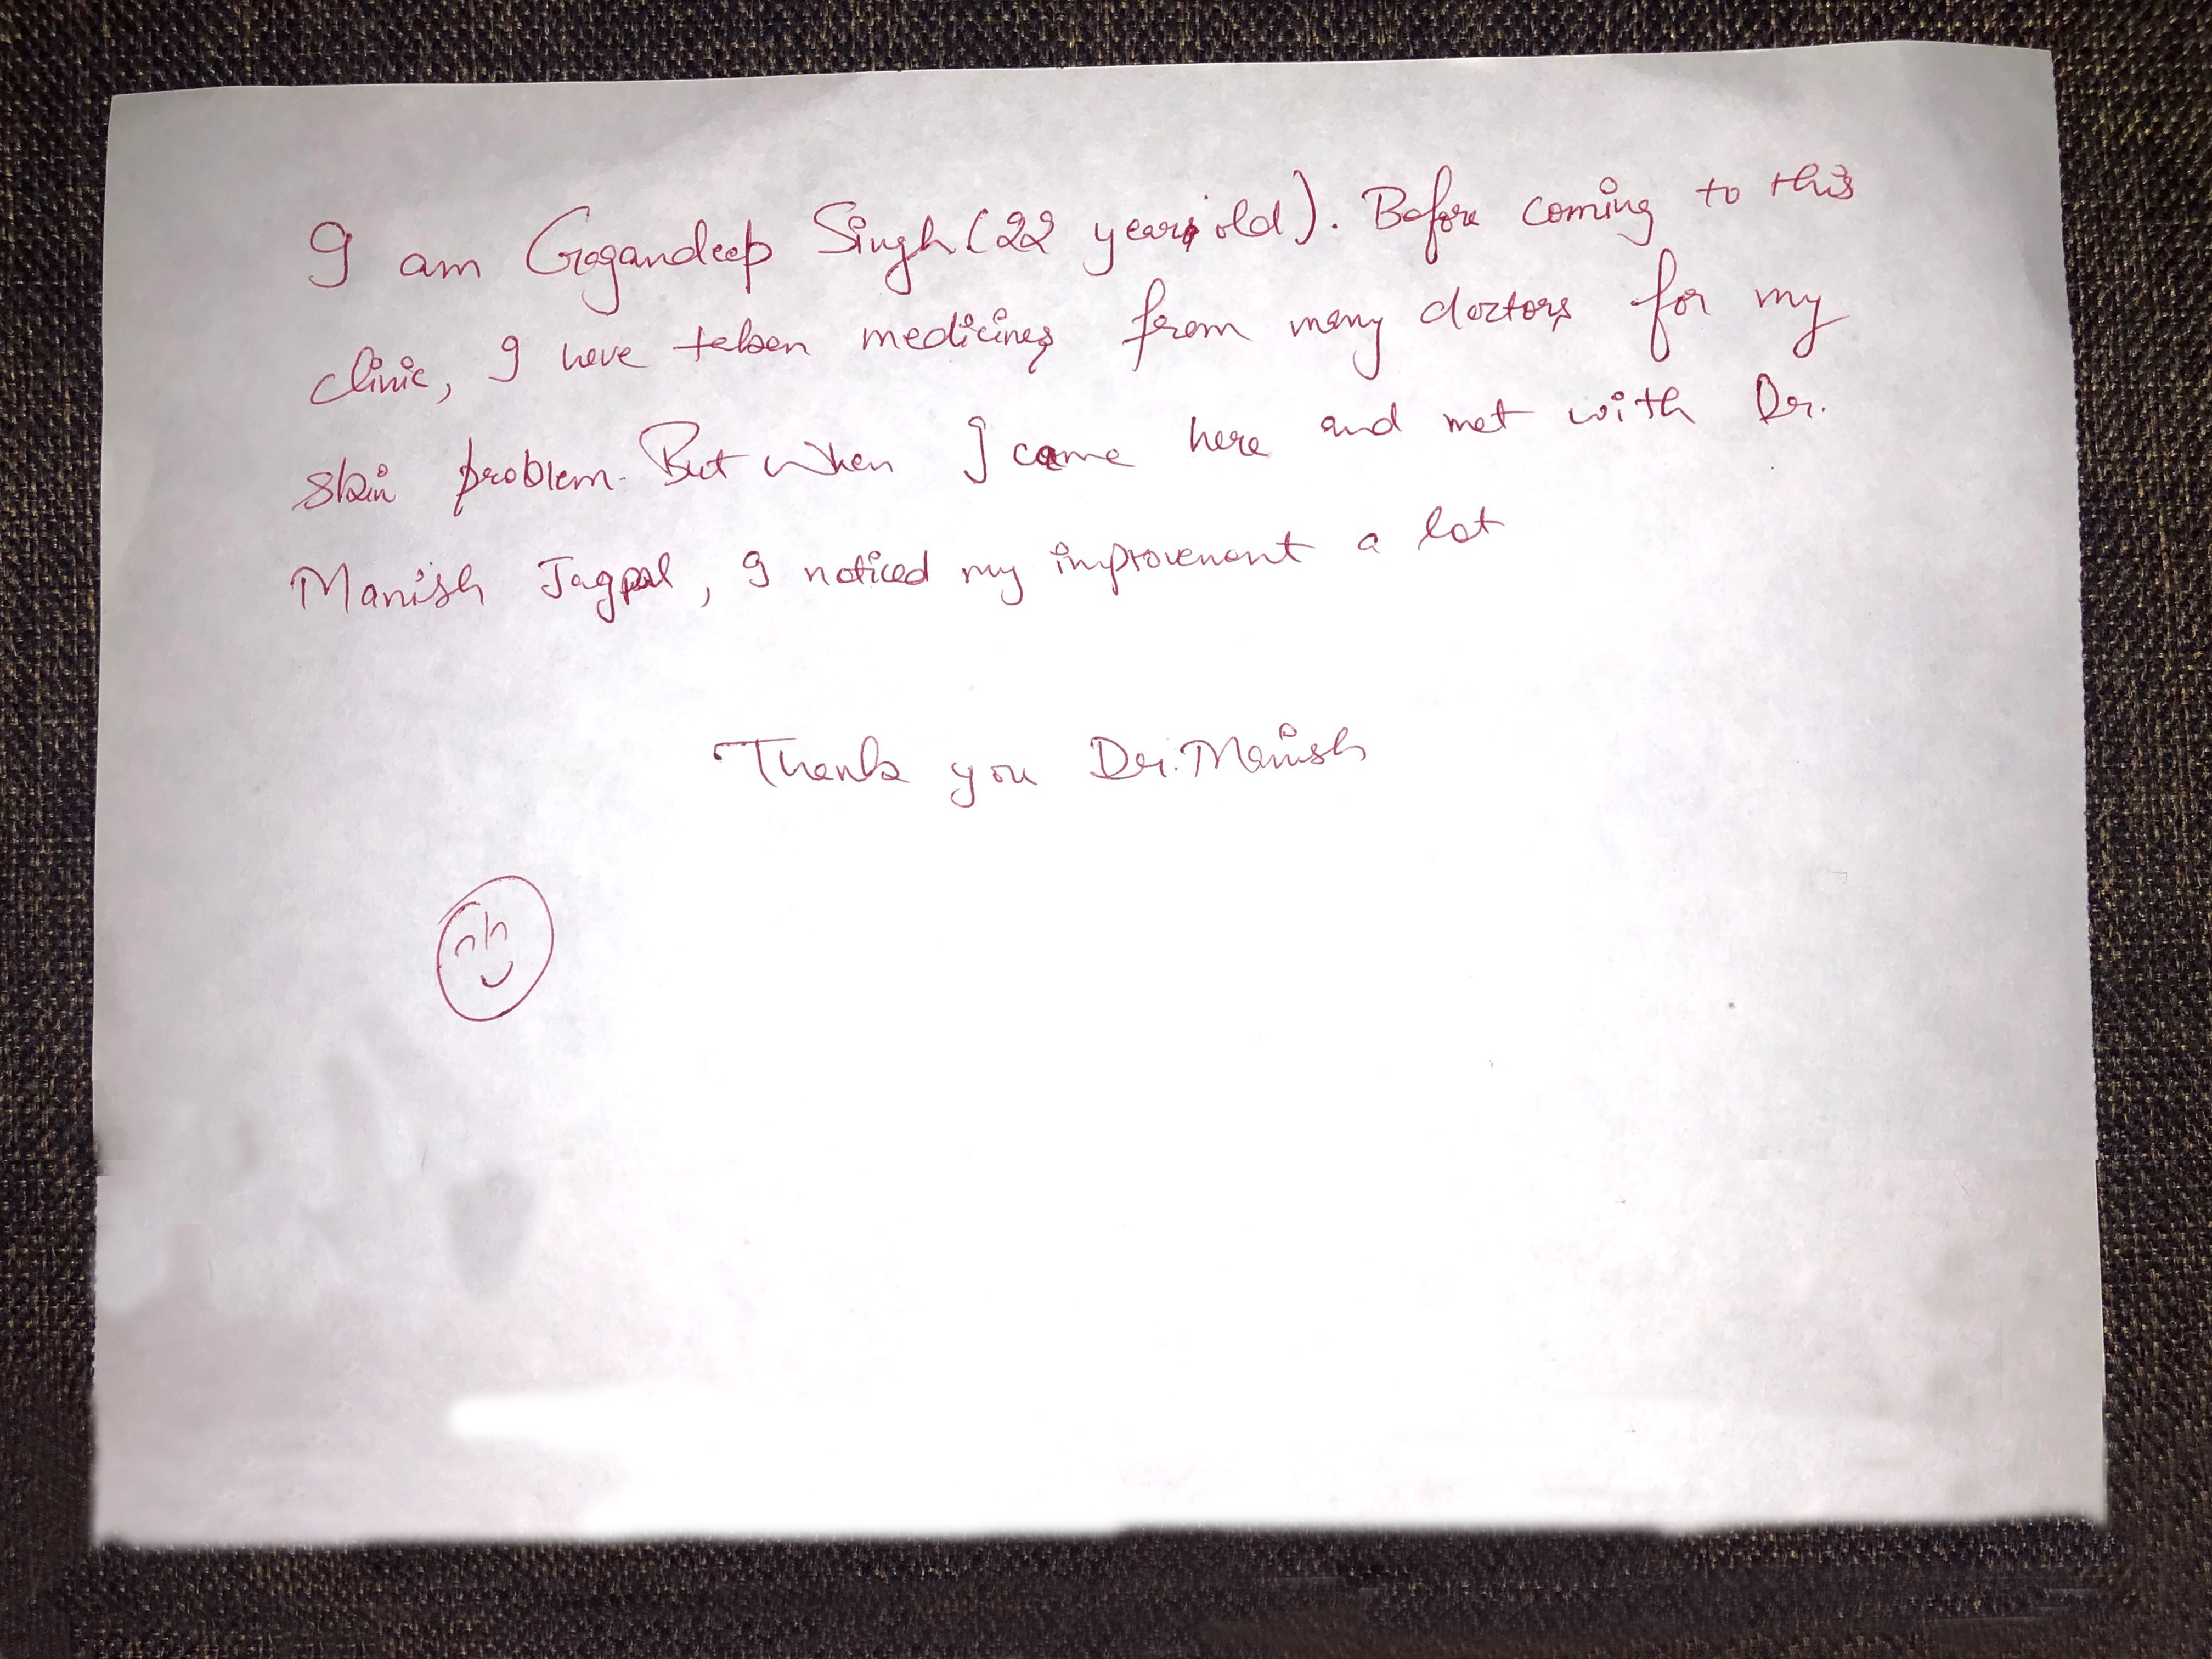 I am Gagandeep Singh (22 years old). Before coming to this
clinic, I have taken medicines from many doctors for my
skin problem. But when I came here and met with Dr.
Manish Jagpal, I noticed my improvement a lot
Thank you Dr. Manish